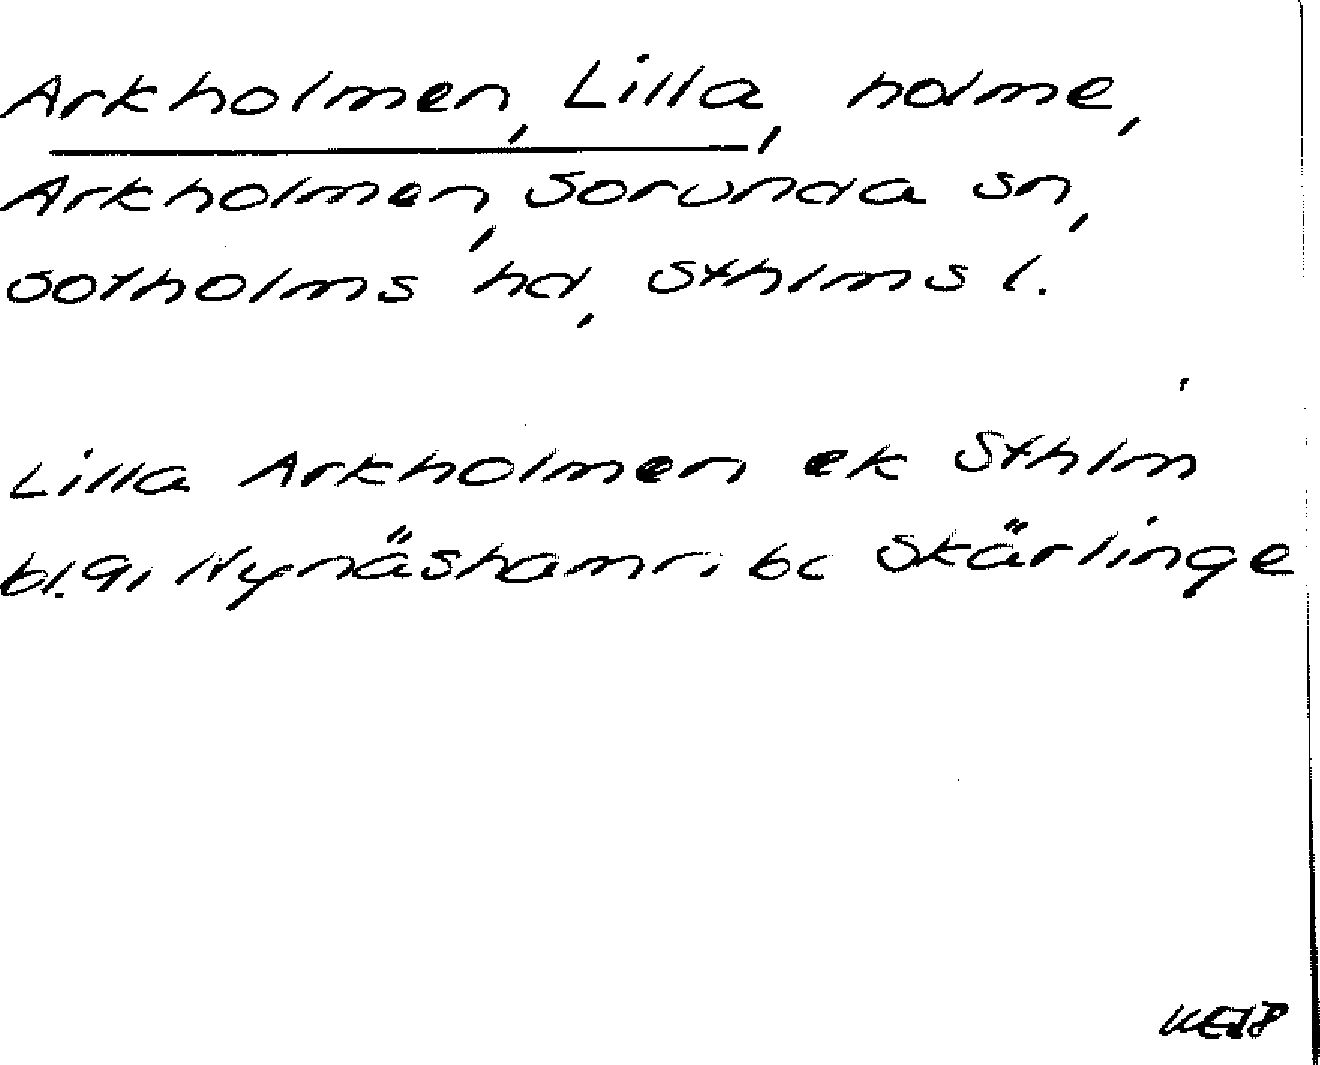 Arkholmen, Lilla, holme,
Arkholmen, Sorunda sn,
Sotholms hd, Sthlms l.
Lilla Arkholmen ek Sthlm
bl. 9, Nynäshamn; bc Skärlinge